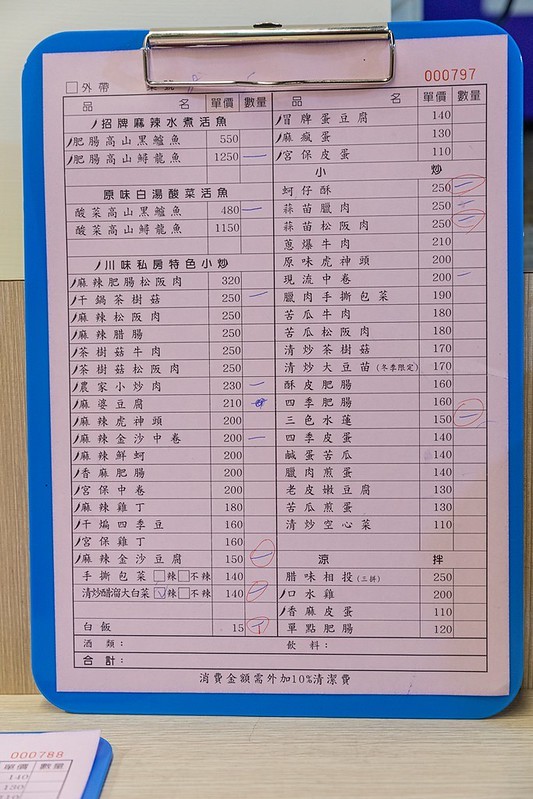 000797
外帶
品 名 單價 數量
招牌麻辣水煮活魚
肥腸高山黑鱸魚 550
肥腸高山鱘龍魚 1250 一
原味白湯酸菜活魚
酸菜高山黑鱸魚 480 一
酸菜高山鱘龍魚 1150
川味私房特色小炒
麻辣肥腸松阪肉 320
干鍋茶樹菇 250 一
麻辣松阪肉 250
麻辣腊腸 250
茶樹菇牛肉 250
茶樹菇松阪肉 250
農家小炒肉 230 一
麻婆豆腐 210
麻辣虎神頭 200
麻辣金沙中卷 200 一
麻辣鮮蚵 200
香麻肥腸 200
宮保中卷 200
麻辣雞丁 180
干煸四季豆 160
宮保雞丁 160
麻辣金沙豆腐 150 一
手撕包菜 辣 不辣 140
清炒醋溜大白菜 辣 不辣 140 一
白飯 15
品 名 單價 數量
冒牌蛋豆腐 140
麻瘋蛋 130
宮保皮蛋 110
小 炒
蚵仔酥 250 一
蒜苗臘肉 250 一
蒜苗松阪肉 250 一
蔥爆牛肉 210
原味虎神頭 200
現流中卷 200 一
臘肉手撕包菜 190
苦瓜牛肉 180
苦瓜松阪肉 180
清炒茶樹菇 170
清炒大豆苗(冬季限定) 170
酥皮肥腸 160
四季肥腸 160
三色水蓮 150 一
四季皮蛋 140
鹹蛋苦瓜 140
臘肉煎蛋 140
老皮嫩豆腐 130
苦瓜煎蛋 130
清炒空心菜 110
涼 拌
腊味相投(三拼) 250
口水雞 200
香麻皮蛋 110
單點肥腸 120
酒類: 飲料:
合計:
消費金額需外加10%清潔費
000788
單價 數量
140
130
110